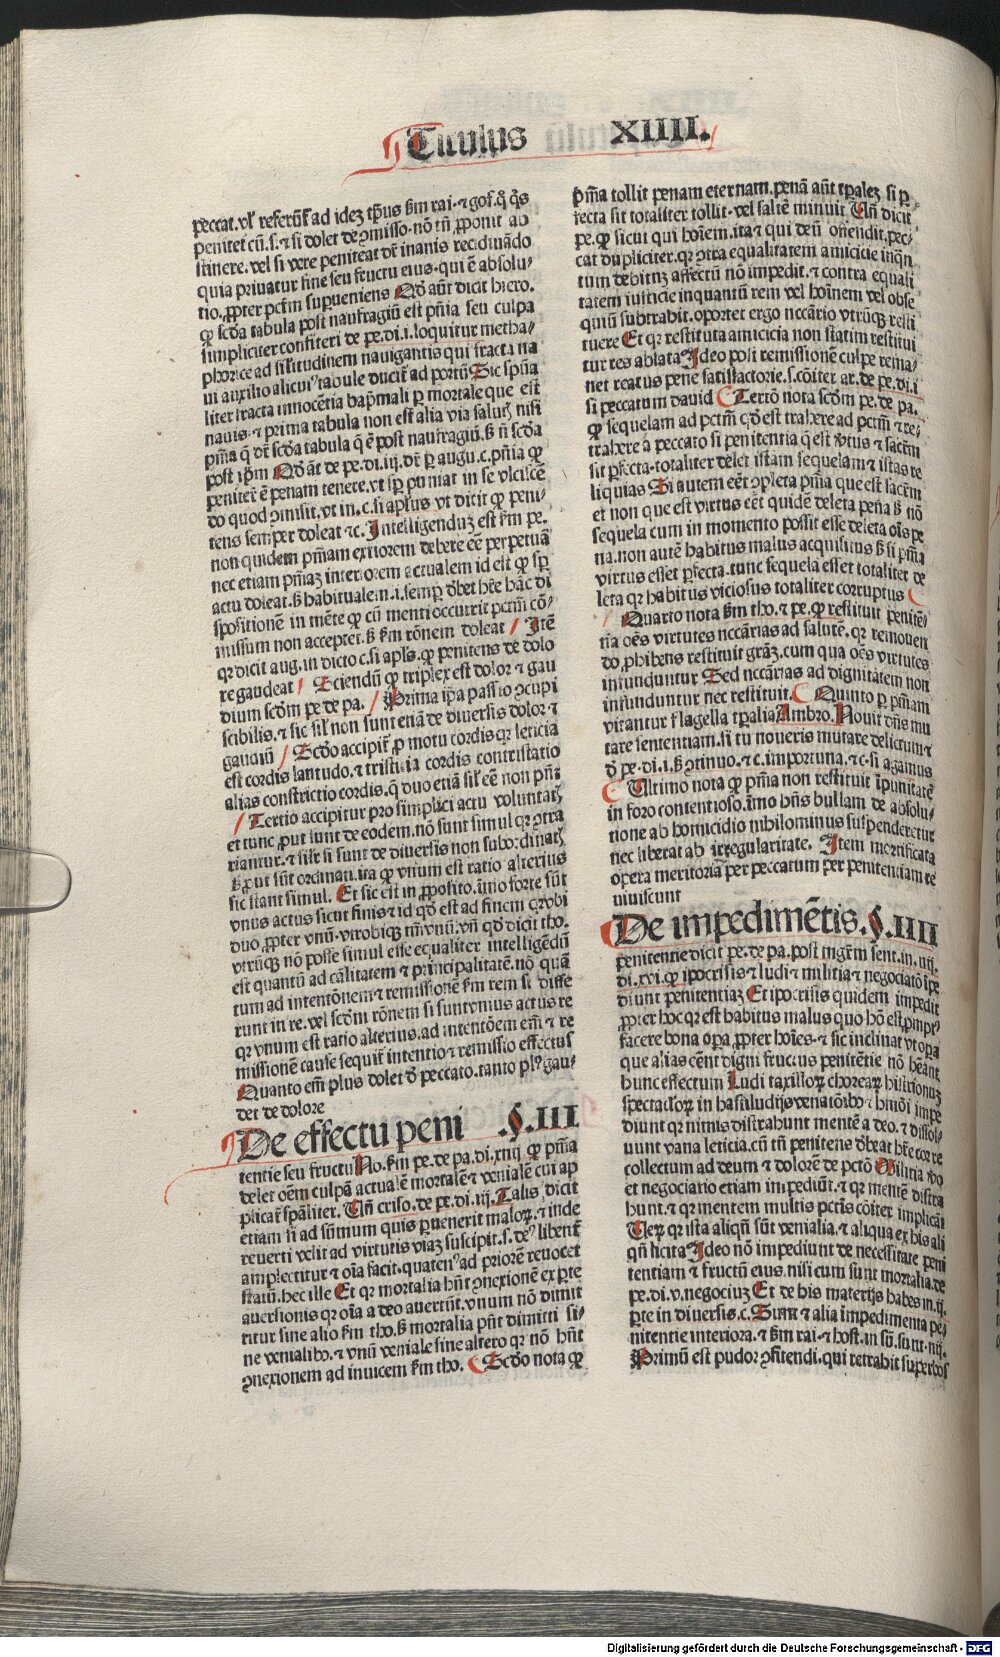 Titulus XIIII.
peccat. vl' referūt̄ ad idez tp̄us s̄m rai. ⁊ gof. q̊ q̇s
penitet cū. s. ⁊ si dolet de ꝯmisso. nō tn̄ ꝓponit ab
stinere. vel si vere peniteat dr̄ inanis recidiuādo
quia priuatur fine seu fructu eius. qui ē absolu-
tio. ꝓpter pctm̄ superueniens Qd' aūt dicit hiero.
ꝙ scd'a tabula post naufragiū est pn̄ia seu culpa
simpliciter confiteri de pe. di. i. loquitur metha-
phorice ad sil'itudinem nauigantis qui fracta na
ui auxilio alicui⁹ tabule ducit̄ ad portū Sic sp̄ua
liter fracta innocētia bap̄mali ꝑ mortale que est
nauis. ⁊ prima tabula non est alia via salut̄ nisi
pn̄ia q̄ dr̄ scd'a tabula q̄ ē post naufragiū. s̄ n̄ scd'a
post ip̄m Qd' āt de pe. di. iij. dr̄ ꝑ augu. c. pn̄ia ꝙ
penitere ē penam tenere. vt sꝑ puniat in se vlciscē
do quod ꝯmisit. vt in. c. si apl'us vt dicit ꝙ peni-
tens semper doleat ⁊c. Intelligenduz est s̄m pe.
non quidem pn̄iam exriorem debere eē perpetuā
nec etiam pn̄iaz interiorem actualem id est ꝙ sꝑ
actu doleat. s̄ habitualem. i. semꝑ d'bet hr̄e hāc di
spositionē in mēte ꝙ cū menti occurrit pctm̄ cō-
missum non acceptet. s̄ s̄m rōnem doleat / Itē
qr dicit aug. in dicto c. si apl's. ꝙ penitens de dolo
re gaudeat / Sciendū ꝙ triplex est dolor ⁊ gau
dium scd'm pe de pa. / Prima ip̄a passio ꝯcupi
scibilis. ⁊ sic sil' non sunt etiā de diuersis dolor ⁊
gaudiū / Scd'o accipit̄ ꝓ motu cordis qr leticia
est cordis lantudo. ⁊ tristicia cordis contristatio
alias constrictio cordis. q̄ duo etiā sil' eē non pn̄t
/ Tertio accipitur pro simplici actu voluntat̄
et tunc ꝓut sunt de eodem. nō sunt simul qr ꝯtra
riantur. ⁊ sil'r si sunt de diuersis non subordinat̄
s̄ ꝓut sūt ordinati. ita ꝙ vnum est ratio alterius
sic stant simul. Et sic est in ꝓposito. īmo forte sūt
vnus actus sicut finis ⁊ id qd' est ad finem qr vbi
duo ꝓpter vnū. vtrobiqꝫ tm̄. vnū. vn̄ qd' dicit tho.
vtrūqꝫ nō posse simul esse equaliter intelligēdū
est quantū ad cālitatem ⁊ principalitatē. nō quā
tum ad intentōnem ⁊ remissionē s̄m rem si diffe
runt in re. vel scd'm rōnem si sunt vnius actus re
qr vnum est ratio alterius. ad intentōem em̄ ⁊ re
missionē cause sequit̄ intentio ⁊ remissio effectus
Quanto em̄ plus dolet d' peccato. tanto pl'⁹ gau-
det de dolore
De effectu peni .§.III
tentie seu fructu No. s̄m pe. de pa. di. xiiij ꝙ pn̄ia
delet oēm culpā actualē mortalē ⁊ venialē cui ap
plicat̄ sp̄aliter. Un̄ criso. de pe. di. iij. Talis dicit
etiam si ad sūmum quis ꝑuenerit maloꝝ. ⁊ inde
reuerti velit ad virtutis viaz suscipit. s. de⁹ libent̄
amplectitur ⁊ oīa facit. quaten⁹ ad priorē reuocet
statū. hec ille Et qr mortalia hn̄t ꝯnexionē ex ꝑte
auersionis qr oīa a deo auertūt. vnum nō dimit
titur sine alio s̄m tho. s̄ mortalia pn̄t dimitti si-
ne venialibꝫ. ⁊ vnū veniale sine altero qr nō hn̄t
ꝯnexionem ad inuicem s̄m tho. Scd'o nota ꝙ
pn̄ia tollit penam eternam. penā aūt tꝑalez si ꝑ
fecta sit totaliter tollit. vel saltē minuit Un̄ dicit
pe. ꝙ sicut qui hoīem. ita ⁊ qui deū offendit. pec-
cat dupliciter. qr ꝯtra equalitatem amicicie inqn̄
tum debituz affectū nō impedit. ⁊ contra equali
tatem iusticie inquantū rem vel hoīnem vel obse
quiū subtrahit. oportet ergo nccārio vtrūqꝫ resti
tuere Et qr restituta amicicia non statim restitui
tur res ablata Ideo post remissionē culpe rema-
net reatus pene satisfactorie. s. cōiter ar. de pe. di. i
si peccatum dauid Tertō nota scd'm pe. de pa.
ꝙ sequelam ad pctm̄ qd' est trahere ad pctm̄ ⁊ re-
trahere a peccato si penitentia q̄ est v̄tus ⁊ sacrm̄
sit ꝑfecta. totaliter delet istam sequelam ⁊ istas re
liquias Si autem eēt ꝯpleta pn̄ia que est sacrm̄
et non que est virtus eēt quidē deleta pena s̄ nō
sequela cum in momento possit esse deleta oīs pe
na. non autē habitus malus acquisitus s̄ si pn̄ia
virtus esset ꝑfecta. tunc sequela esset totaliter de
leta qr habitus viciosus totaliter corruptus
/ Quarto nota s̄m tho. ⁊ pe. ꝙ restituit penitē-
tia oēs virtutes nccārias ad salutē. qr remouen
do ꝓhibens restituit grāz. cum qua oēs virtutes
infunduntur Sed nccārias ad dignitatem non
infunduntur nec restituit. Quinto ꝑ pn̄iam
vitantur flagella tꝑalia Ambro. Nouit dn̄s mu
tare sententiam. si tu noueris mutare delictum ⁊
d' pe. di. i. s̄ ꝯtinuo. ⁊ c. importuna. ⁊ c. si agamus
Ultimo nota ꝙ pn̄ia non restituit īpunitatē
in foro contentioso. īmo hn̄s bullam de absolu-
tione ab homicidio nihilominus suspenderetur
nec liberat ab irregularitate. Item mortificata
opera meritoria per peccatum per penitentiam re
uiuiscunt
De impedimētis. §. IIII
penitentie dicit pe. de pa. post mgr̄m sent. in. iiij.
di. xvi. ꝙ ipocrisis ⁊ ludi ⁊ militia ⁊ negociatō īpe
diunt penitentiaz Et ipocrisis quidem impedit
ꝓpter hoc qr est habitus malus quo hō est ꝓmpt⁹
facere bona oꝑa ꝓpter hoīes. ⁊ sic inclinat vt oꝑa
que alias cēnt digni fructus penitētie nō hēant
hunc effectum Ludi taxilloꝝ choreaꝝ histrionuz
spectacl'oꝝ in hastiludijs venatōibꝫ ⁊ hmōi impe
diunt qr nimis distrahunt mentē a deo. ⁊ dissol-
uunt vana leticia. cū tn̄ penitens d'beat hr̄e cor re
collectum ad deum ⁊ dolorē de pctō Militia vo
et negociatio etiam impediūt. ⁊ qr mentē distra
hunt. ⁊ qr mentem multis pctīs cōiter implicāt
Ueꝝ qr ista aliqn̄ sūt venialia. ⁊ aliqua ex his ali
qn̄ licita Ideo nō impediunt de necessitate peni
tentiam ⁊ fructū eius. nisi cum sunt mortalia. de
pe. di. v. negociuz Et de his materijs habes in. ij.
ꝑte in diuersis. c. Sunt ⁊ alia impedimenta pe-
nitentie interiora. ⁊ s̄m rai. ⁊ host. in sū. sunt. iiij.
Primū est pudor ꝯfitendi. qui retrahit superbos
Digitalisierung gefördert durch die Deutsche Forschungsgemeinschaft - DFG